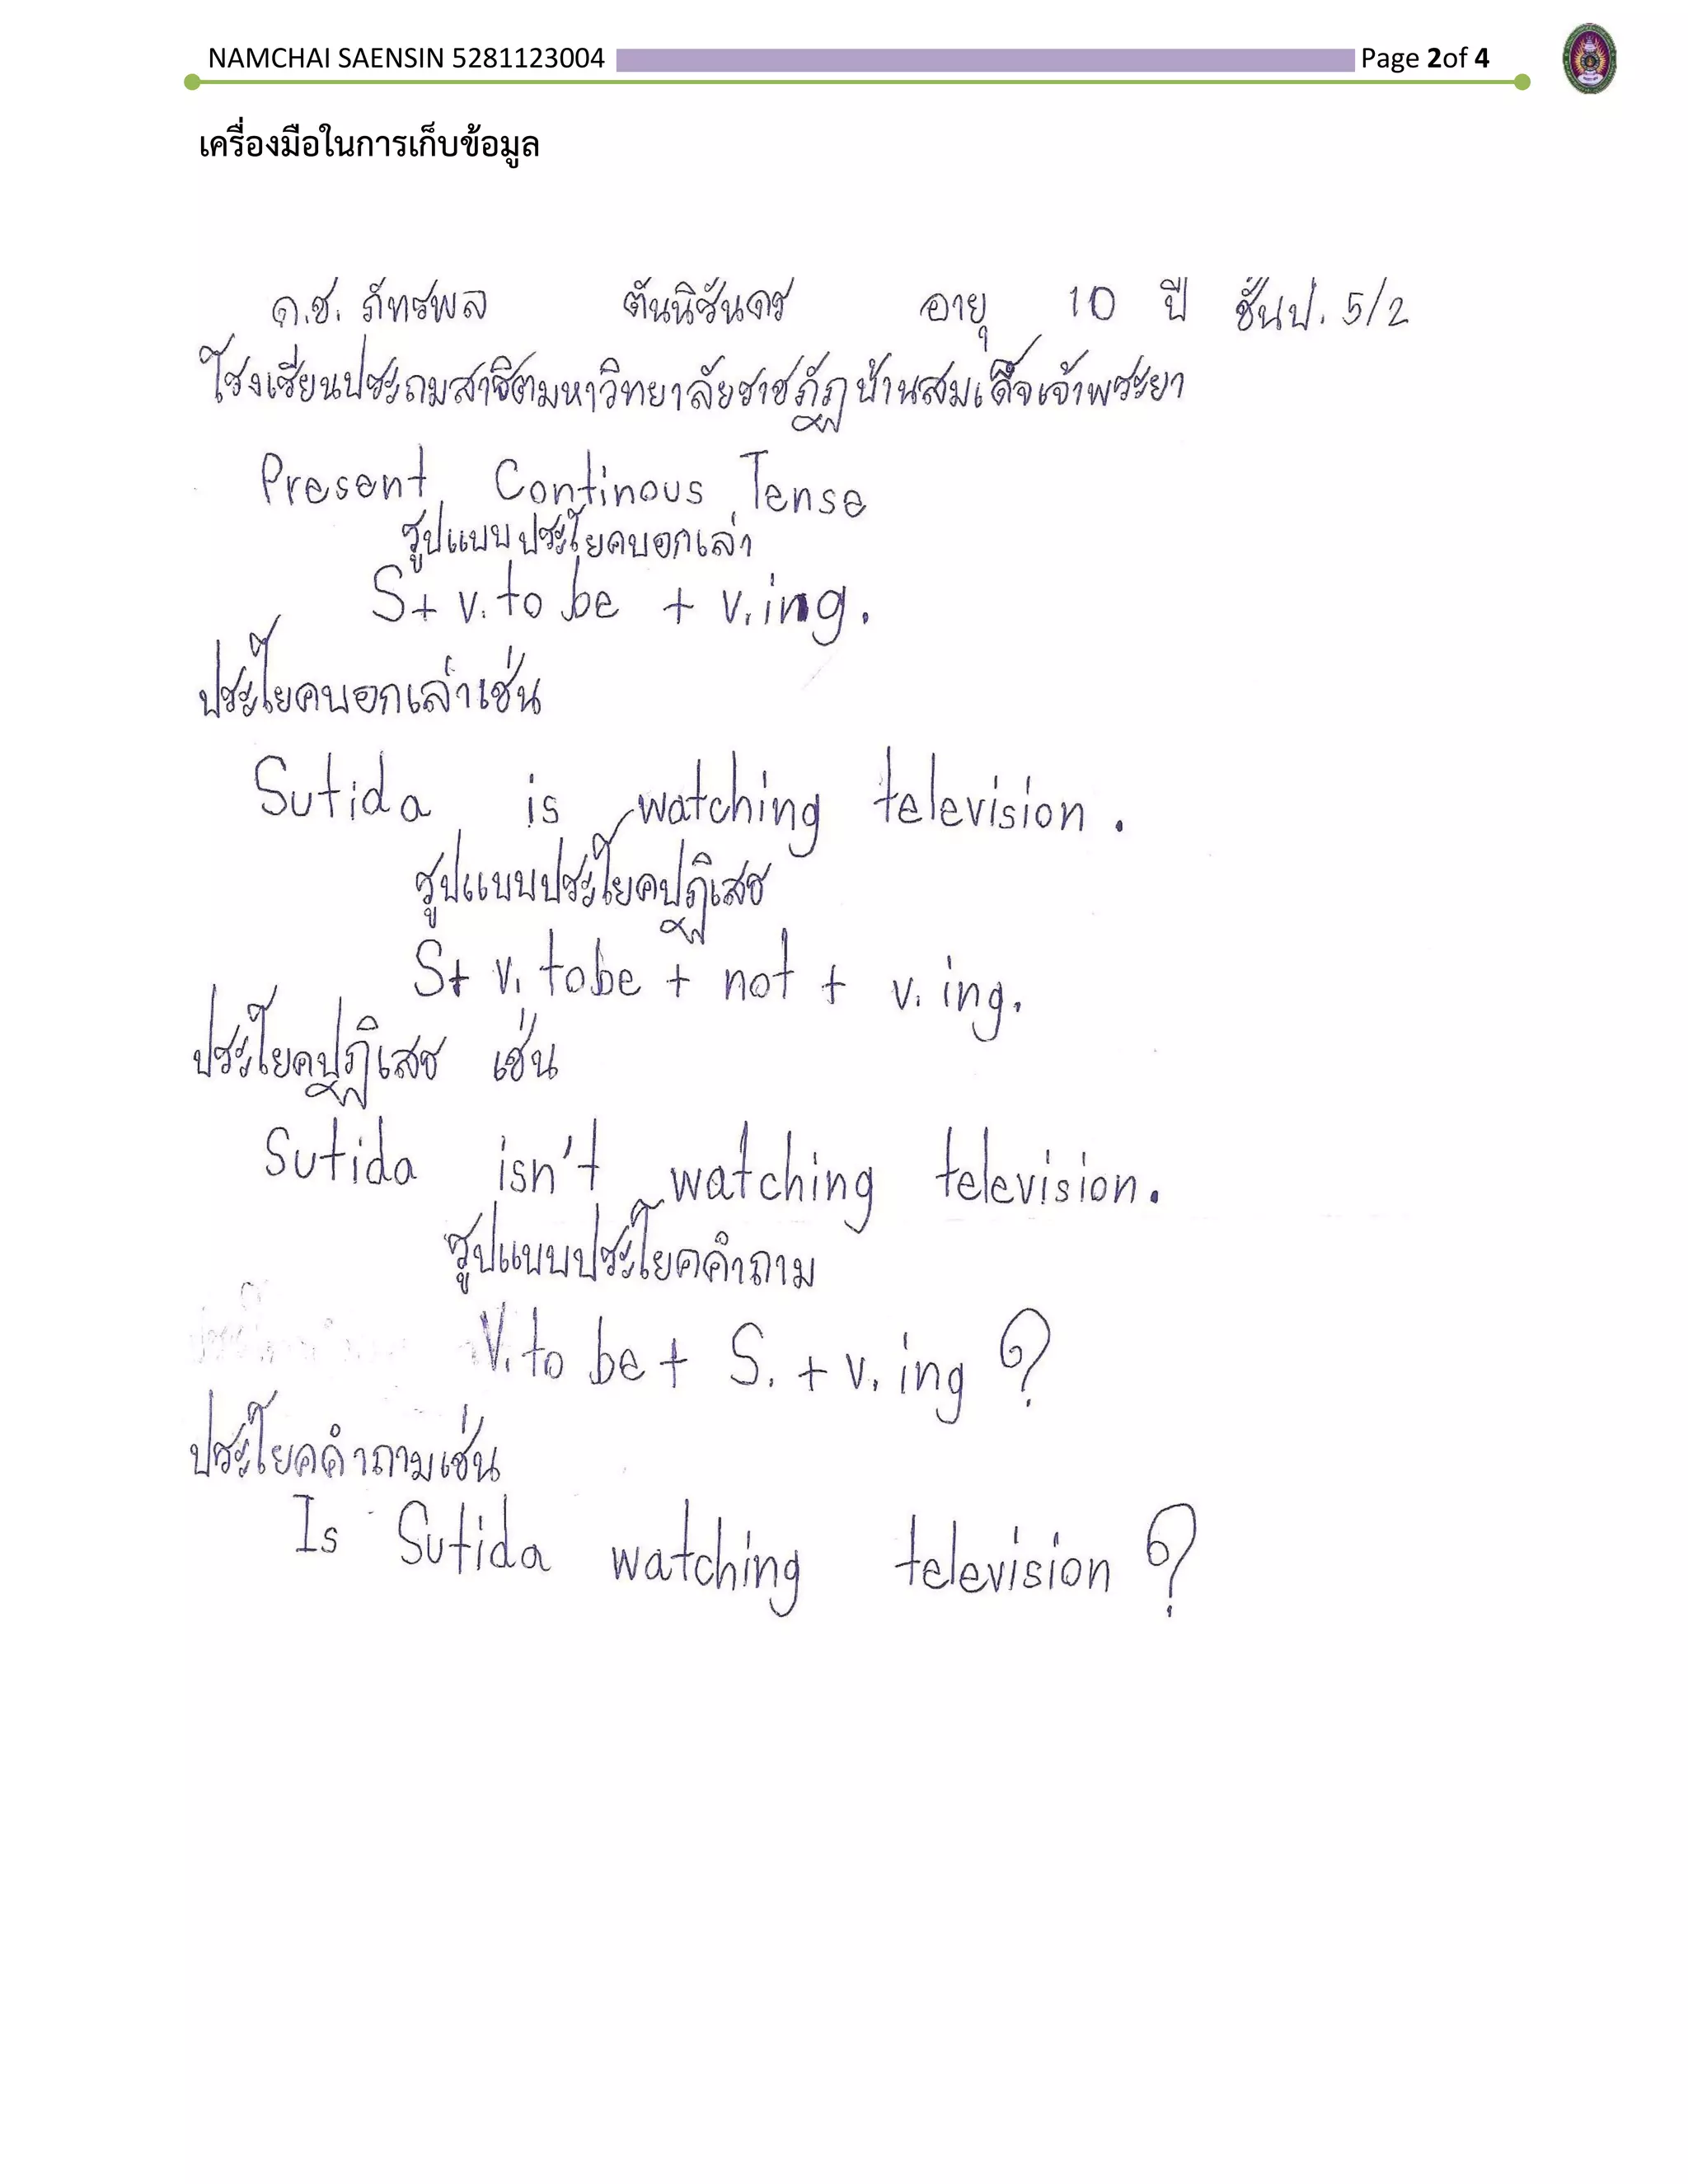 NAMCHAI SAENSIN 5281123004 Page 2of 4
เครื่องมือในการเก็บข้อมูล
ด.ช. ภัทรพล ตันนิรันดร อายุ 10 ปี ชั้นป. 5/2
โรงเรียนประถมสาธิตมหาวิทยาลัยราชภัฏบ้านสมเด็จเจ้าพระยา
Present Continous Tense
รูปแบบประโยคบอกเล่า
S+ v. to be + v.ing.
ประโยคบอกเล่าเช่น
Sutida is watching television.
รูปแบบประโยคปฏิเสธ
S+ v. tobe + not + v. ing.
ประโยคปฏิเสธ เช่น
Sutida isn't watching television.
รูปแบบประโยคคำถาม
V. to be + S. + v. ing ?
ประโยคคำถามเช่น
Is Sutida watching television ?